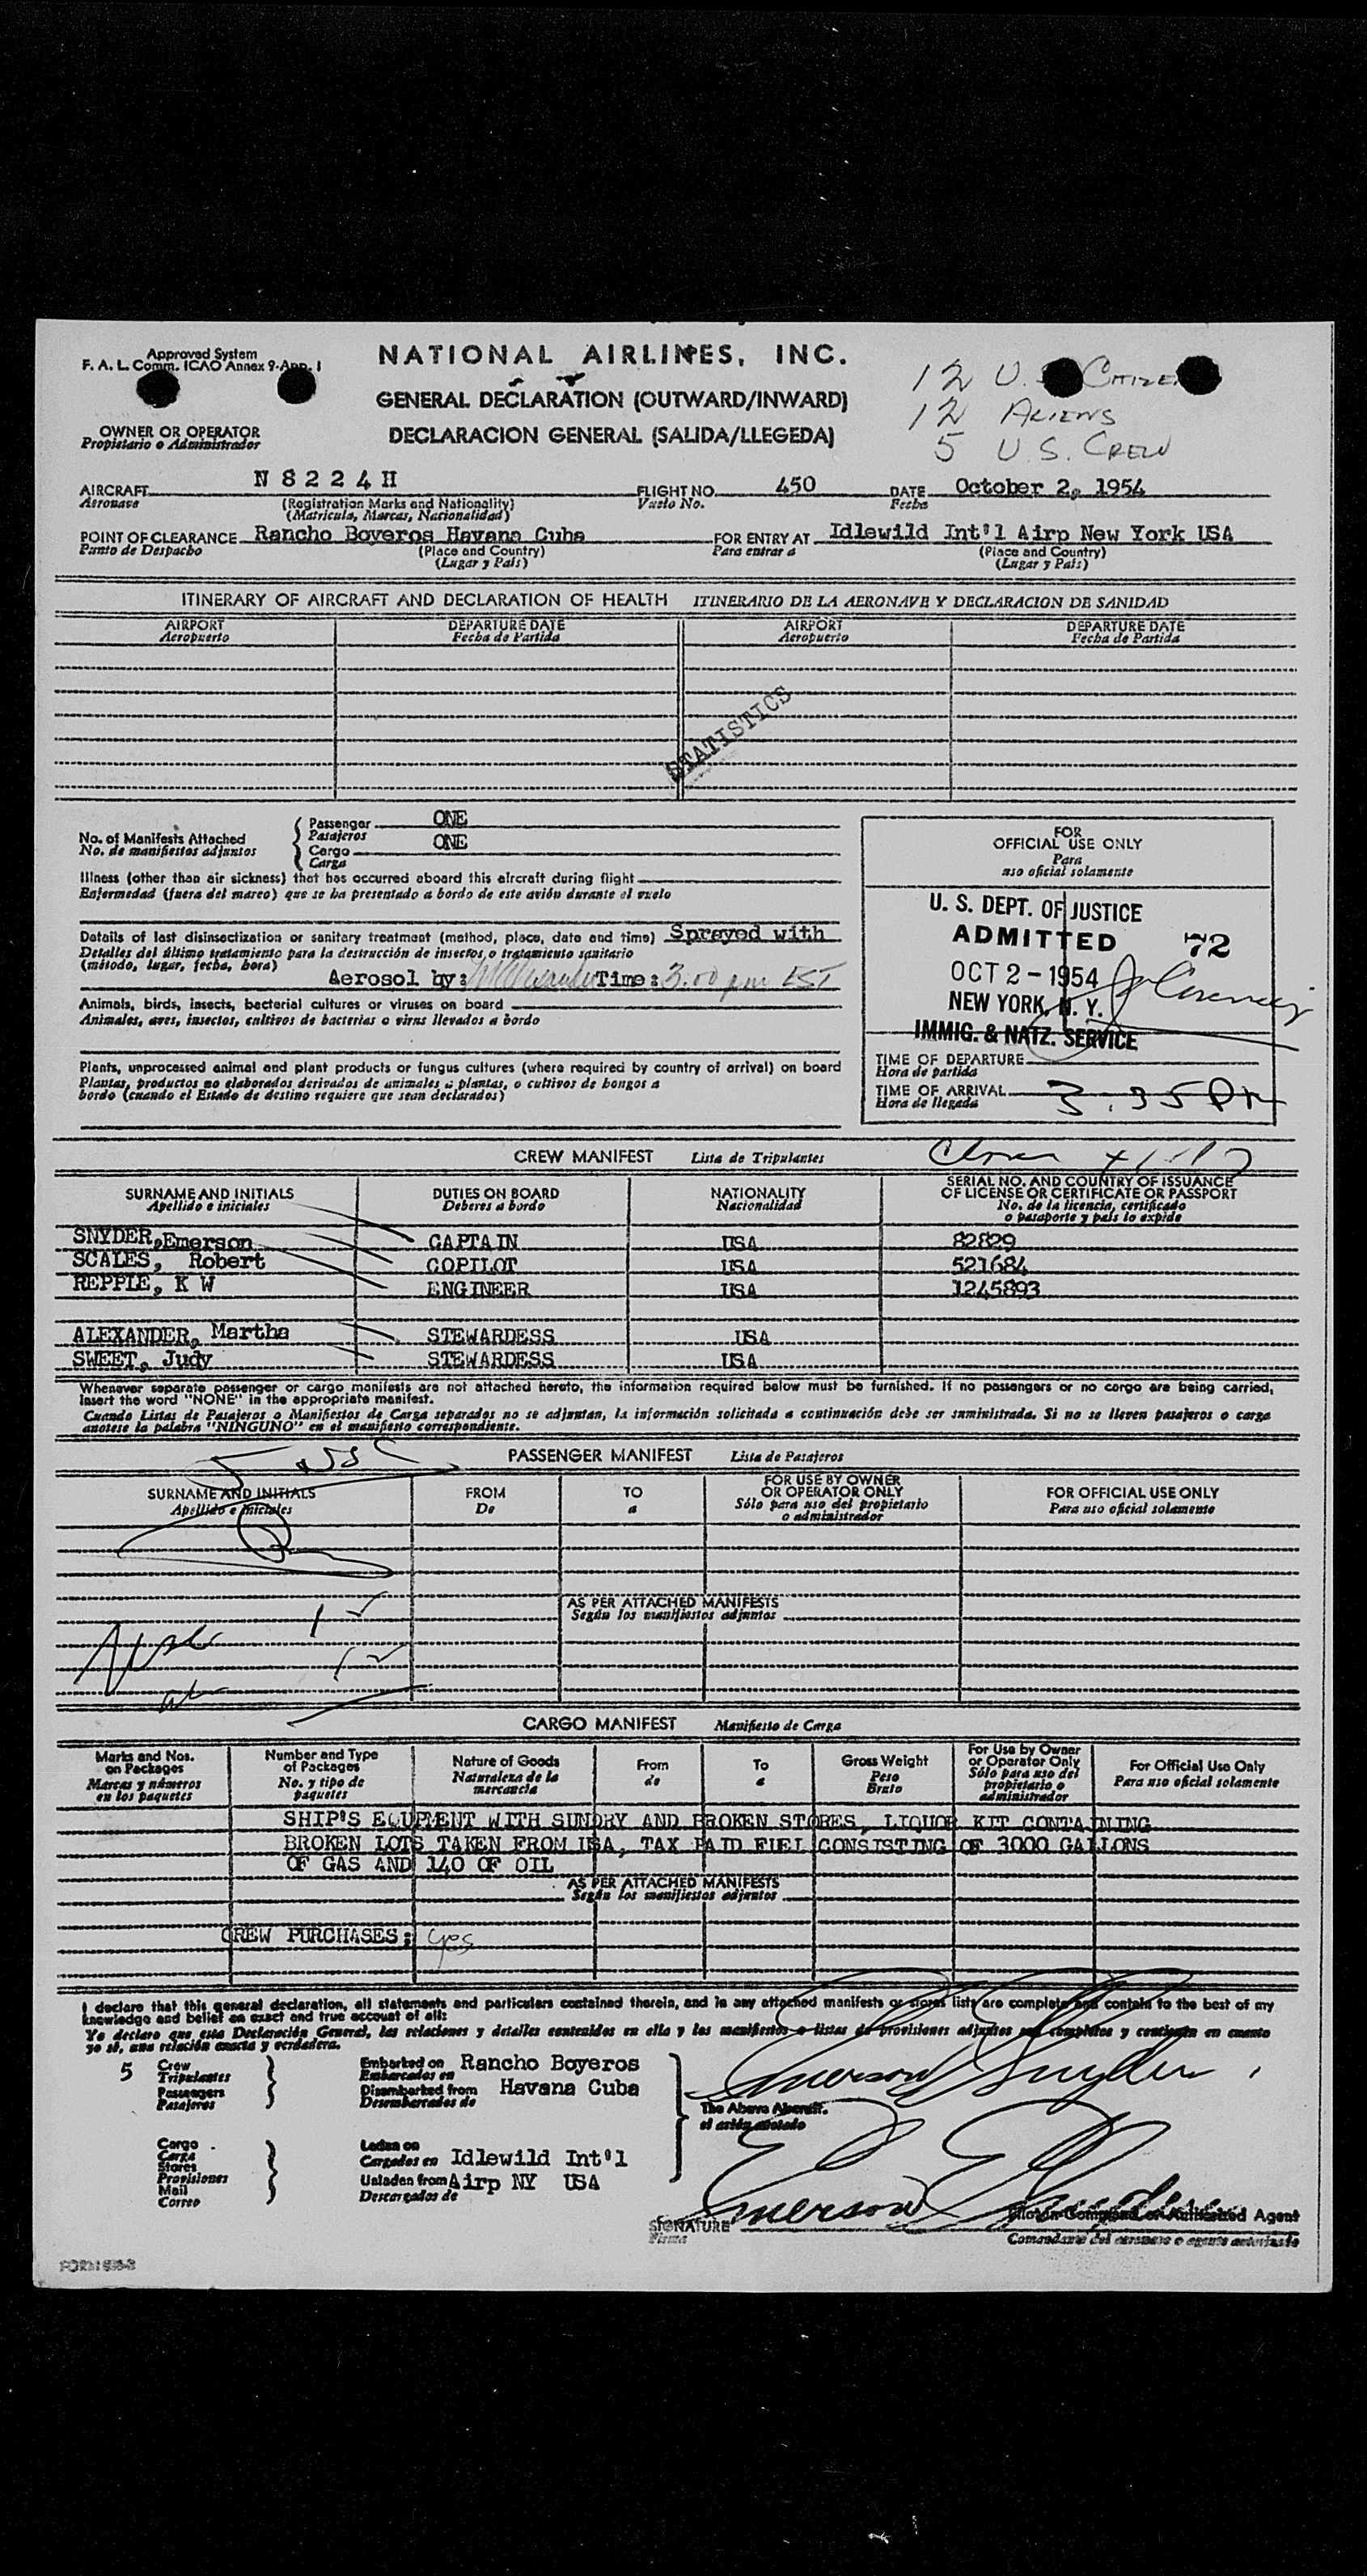 Approved System
F. A. L. Comm. ICAO Annex 9-App. I
NATIONAL AIRLINES, INC.
GENERAL DECLARATION (OUTWARD/INWARD)
DECLARACION GENERAL (SALIDA/LLEGEDA)
12 U.S. CITIZE
12 ALIENS
5 U.S. CREW
OWNER OR OPERATOR
Propietario o Administrador
AIRCRAFT N 8 2 2 4 H FLIGHT NO. 450 DATE October 2, 1954
Aeronave (Registration Marks and Nationality) Vuelo No. Fecha
(Matricula, Marcas, Nacionalidad)
POINT OF CLEARANCE Rancho Boyeros Havana Cuba FOR ENTRY AT Idlewild Int'l Airp New York USA
Punto de Despacho (Place and Country) Para entrar a (Place and Country)
(Lugar y País) (Lugar y País)
ITINERARY OF AIRCRAFT AND DECLARATION OF HEALTH ITINERARIO DE LA AERONAVE Y DECLARACION DE SANIDAD
AIRPORT DEPARTURE DATE AIRPORT DEPARTURE DATE
Aeropuerto Fecha de Partida Aeropuerto Fecha de Partida
STATISTICS
No. of Manifests Attached
No. de manifiestos adjuntos
Passenger ONE
Pasajeros
Cargo ONE
Carga
Illness (other than air sickness) that has occurred aboard this aircraft during flight
Enfermedad (fuera del mareo) que se ha presentado a bordo de este avión durante el vuelo
Details of last disinsectization or sanitary treatment (method, place, date and time) Sprayed with
Detalles del último tratamiento para la destrucción de insectos o tratamiento sanitario
(método, lugar, fecha, hora)
Aerosol by: Time: 3:00 pm EST
Animals, birds, insects, bacterial cultures or viruses on board
Animales, aves, insectos, cultivos de bacterias o virus llevados a bordo
Plants, unprocessed animal and plant products or fungus cultures (where required by country of arrival) on board
Plantas, productos no elaborados derivados de animales o plantas, o cultivos de hongos a
bordo (cuando el Estado de destino requiere que sean declarados)
FOR
OFFICIAL USE ONLY
Para
uso oficial solamente
U. S. DEPT. OF JUSTICE
ADMITTED 72
OCT 2 - 1954
NEW YORK, N. Y.
IMMIG. & NATZ. SERVICE
TIME OF DEPARTURE
Hora de partida
TIME OF ARRIVAL 3.35 PM
Hora de llegada
CREW MANIFEST Lista de Tripulantes
SURNAME AND INITIALS DUTIES ON BOARD NATIONALITY SERIAL NO. AND COUNTRY OF ISSUANCE
Apellido e iniciales Deberes a bordo Nacionalidad OF LICENSE OR CERTIFICATE OR PASSPORT
No. de la licencia, certificado
o pasaporte y país lo expide
SNYDER, Emerson CAPTAIN USA 82829
SCALES, Robert COPILOT USA 521684
REPPLE, K W ENGINEER USA 1245893
ALEXANDER, Martha STEWARDESS USA
SWEET, Judy STEWARDESS USA
Whenever separate passenger or cargo manifests are not attached hereto, the information required below must be furnished. If no passengers or no cargo are being carried,
insert the word "NONE" in the appropriate manifest.
Cuando Listas de Pasajeros o Manifiestos de Carga separados no se adjuntan, la información solicitada a continuación debe ser suministrada. Si no se lleven pasajeros o carga
anotese la palabra "NINGUNO" en el manifiesto correspondiente.
PASSENGER MANIFEST Lista de Pasajeros
SURNAME AND INITIALS FROM TO FOR USE BY OWNER FOR OFFICIAL USE ONLY
Apellido e iniciales De a OR OPERATOR ONLY Para uso oficial solamente
Sólo para uso del propietario
o administrador
AS PER ATTACHED MANIFESTS
Según los manifiestos adjuntos
CARGO MANIFEST Manifiesto de Carga
Marks and Nos. Number and Type Nature of Goods From To Gross Weight For Use by Owner For Official Use Only
on Packages of Packages Naturaleza de la de a Peso or Operator Only Para uso oficial solamente
Marcas y números No. y tipo de mercancia Bruto Sólo para uso del
en los paquetes paquetes propietario o
administrador
SHIP'S EQUPMENT WITH SUNDRY AND BROKEN STORES, LIQUOR KIT CONTAINING
BROKEN LOTS TAKEN FROM USA, TAX PAID FUEL CONSISTING OF 3000 GALLONS
OF GAS AND 140 OF OIL
AS PER ATTACHED MANIFESTS
Según los manifiestos adjuntos
CREW PURCHASES: yes
I declare that this general declaration, all statements and particulars contained therein, and in any attached manifests or stores lists are complete and contain to the best of my
knowledge and belief an exact and true account of all:
Yo declaro que esta Declaración General, las relaciones y detalles contenidos en ella y los manifiestos o listas de provisiones adjuntos son completos y contienen en cuanto
yo sé, una relación exacta y verdadera.
5 Crew Embarked on Rancho Boyeros
Tripulantes Embarcados en
Passengers Disembarked from Havana Cuba
Pasajeros Desembarcados de
Emerson Snyder
The Above Aircraft.
el avión anotado
Cargo Laden on
Carga Cargados en Idlewild Int'l
Stores
Provisiones Unladen from Airp NY USA
Mail Descargados de
Correo
Emerson Snyder
SIGNATURE Pilot in Command or Authorized Agent
Firma Comandante del aeronave o agente autorizado